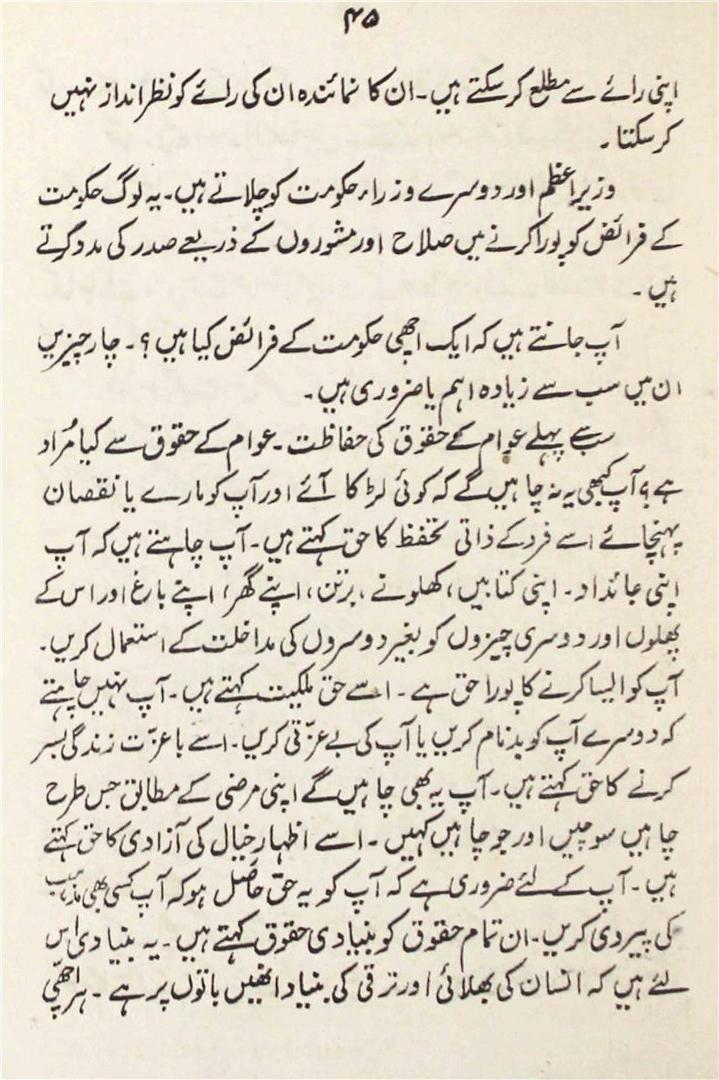 ۴۵
اپنی رائے سے مطلع کر سکتے ہیں۔ ان کا نمائندہ ان کی رائے کو نظر انداز نہیں
کر سکتا۔
وزیراعظم اور دوسرے وزراء حکومت کو چلاتے ہیں۔ یہ لوگ حکومت
کے فرائض کو پورا کرنے میں صلاح اور مشوروں کے ذریعے صدر کی مدد کرتے
ہیں۔
آپ جانتے ہیں کہ ایک اچھی حکومت کے فرائض کیا ہیں؟۔ چار چیزیں
ان میں سب سے زیادہ اہم یا ضروری ہیں۔
سب سے پہلے عوام کے حقوق کی حفاظت۔ عوام کے حقوق سے کیا مُراد
ہے؟ آپ کبھی یہ نہ چاہیں گے کہ کوئی لڑکا آئے اور آپ کو مارے یا نقصان
پہنچائے اسے فرد کے ذاتی تحفظ کا حق کہتے ہیں۔ آپ چاہتے ہیں کہ آپ
اپنی جائداد۔ اپنی کتابیں، کھلونے، برتن، اپنے گھر، اپنے باغ اور اس کے
پھلوں اور دوسری چیزوں کو بغیر دوسروں کی مداخلت کے استعمال کریں۔
آپ کو ایسا کرنے کا پورا حق ہے۔ اسے حق ملکیت کہتے ہیں۔ آپ نہیں چاہتے
کہ دوسرے آپ کو بدنام کریں یا آپ کی بے عزّتی کریں۔ اسے باعزّت زندگی بسر
کرنے کا حق کہتے ہیں۔ آپ یہ بھی چاہیں گے اپنی مرضی کے مطابق جس طرح
چاہیں سوچیں اور جو چاہیں کہیں۔ اسے اظہارِ خیال کی آزادی کا حق کہتے
ہیں۔ آپ کے لئے ضروری ہے کہ آپ کو یہ حق حاصل ہو کہ آپ کسی بھی مذہب
کی پیروی کریں۔ ان تمام حقوق کو بنیادی حقوق کہتے ہیں۔ یہ بنیادی اس
لئے ہیں کہ انسان کی بھلائی اور ترقی کی بنیاد انھیں باتوں پر ہے۔ ہر اچھی